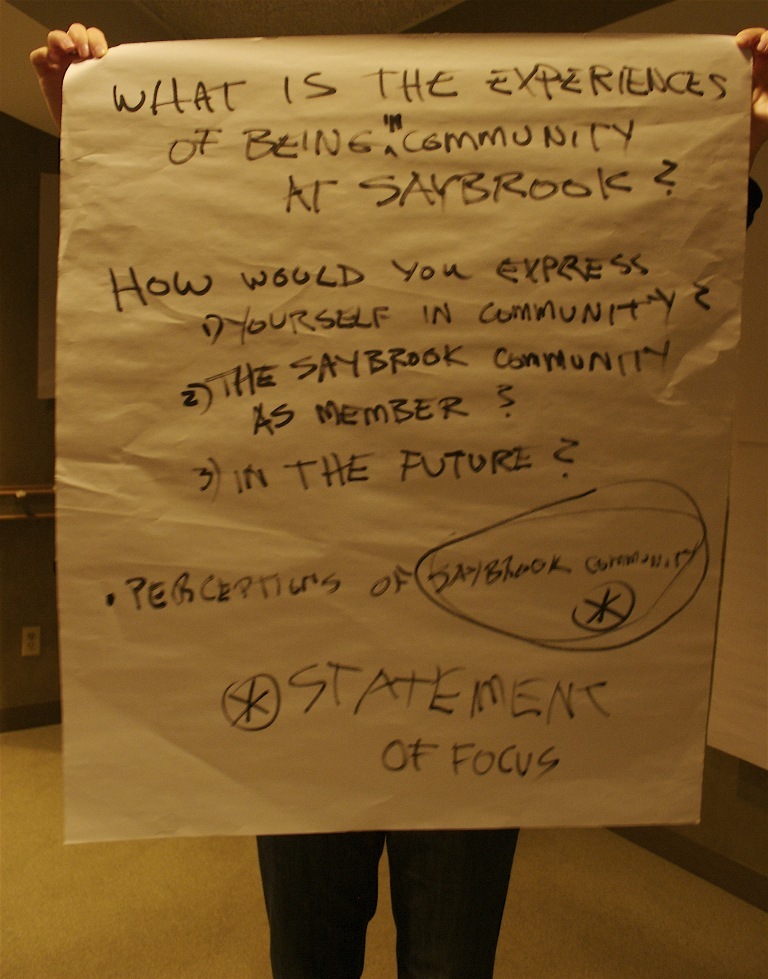 WHAT IS THE EXPERIENCES
OF BEING IN COMMUNITY
AT SAYBROOK ?
HOW WOULD YOU EXPRESS
1) YOURSELF IN COMMUNITY ?
2) THE SAYBROOK COMMUNITY
AS MEMBER ?
3) IN THE FUTURE ?
• PERCEPTIONS OF SAYBROOK COMMUNITY
* STATEMENT
OF FOCUS